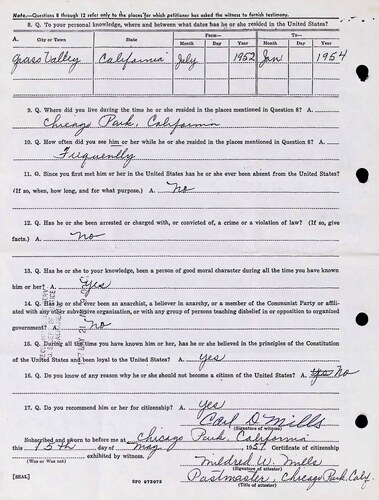 Note.—Questions 8 through 12 refer only to the places for which petitioner has asked the witness to furnish testimony.
8. Q. To your personal knowledge, where and between what dates has he or she resided in the United States?
A. City or Town State From— To—
Month Day Year Month Day Year
Grass Valley California July 1952 Jan 1954
9. Q. Where did you live during the time he or she resided in the places mentioned in Question 8? A.
Chicago Park, California
10. Q. How often did you see him or her while he or she resided in the places mentioned in Question 8? A.
Frequently
11. Q. Since you first met him or her in the United States has he or she ever been absent from the United States?
(If so, when, how long, and for what purpose.) A. No
12. Q. Has he or she been arrested or charged with, or convicted of, a crime or a violation of law? (If so, give
facts.) A. No
13. Q. Has he or she to your knowledge, been a person of good moral character during all the time you have known
him or her? A. Yes
14. Q. Has he or she ever been an anarchist, a believer in anarchy, or a member of the Communist Party or affili-
ated with any other subversive organization, or with any group of persons teaching disbelief in or opposition to organized
government? A. No
15. Q. During all the time you have known him or her, has he or she believed in the principles of the Constitution
of the United States and been loyal to the United States? A. Yes
16. Q. Do you know of any reason why he or she should not become a citizen of the United States? A. Yes No
17. Q. Do you recommend him or her for citizenship? A. Yes
Carl D. Mills
(Signature of witness)
Subscribed and sworn to before me at Chicago Park, California
this 15th day of May, 1957. Certificate of citizenship
exhibited by witness.
(Was or Was not)
Mildred W. Mills
(Signature of attestor)
Postmaster, Chicago Park, Calif.
(Title of attestor)
[SEAL] GPO